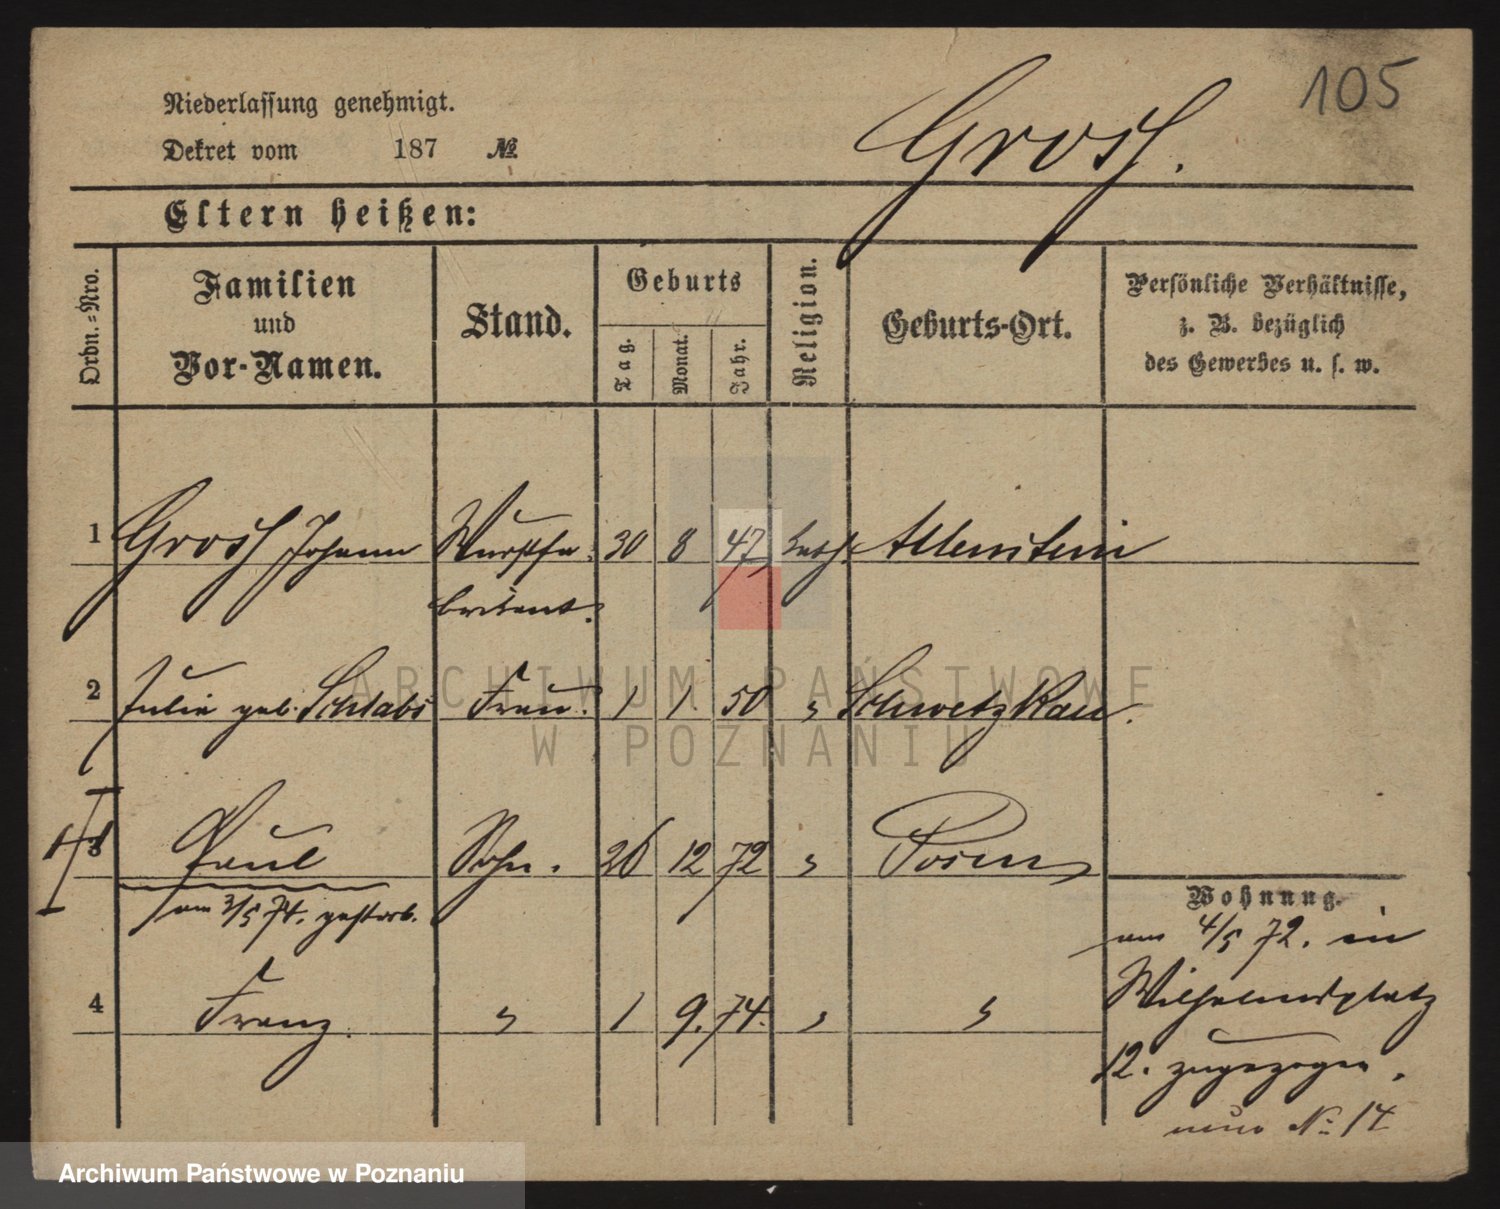 105
Niederlassung genehmigt.
Dekret vom 187 №
Grosß.
Eltern heißen:
Ordn.-Nro.
Familien und Vor-Namen.
Stand.
Geburts
Tag.
Monat.
Jahr.
Religion.
Geburts-Ort.
Persönliche Verhältnisse,
z. B. bezüglich
des Gewerbes u. s. w.
1 Grosß Johann Wurstfa- 30 8 47 kath. Allenstein
brikant.
2 Julie geb. Schlabs Frau. 1 1 50 " Schwetzkau.
3 Paul Sohn. 26 12 72 " Posen
am 3/5 74. gestorb.
4 Franz. " 1 9. 74. " "
Wohnung.
am 4/5 72. in
Wilhelmsplatz
12. zugezogen.
neue No 14
ARCHIWUM PAŃSTWOWE
W POZNANIU
Archiwum Państwowe w Poznaniu